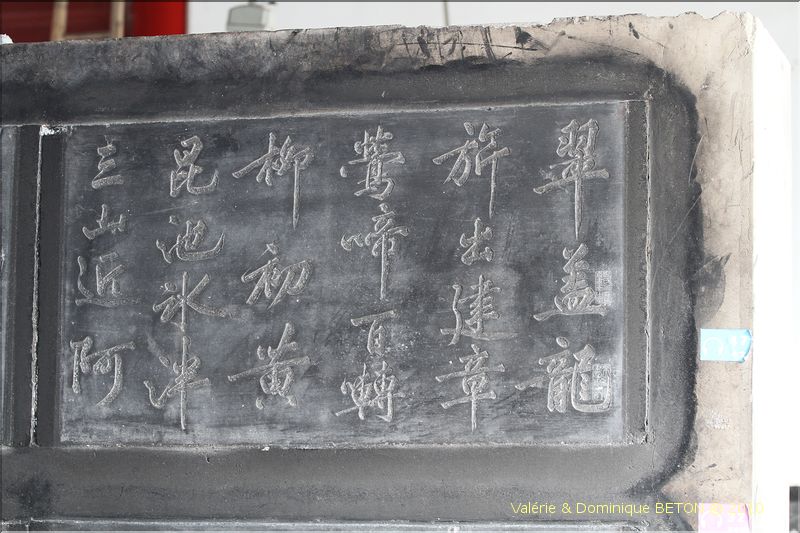 翠盖龍
旂出建章
鶯啼百轉
柳初黄
昆池冰泮
三山近阿
Valérie & Dominique BETON ©